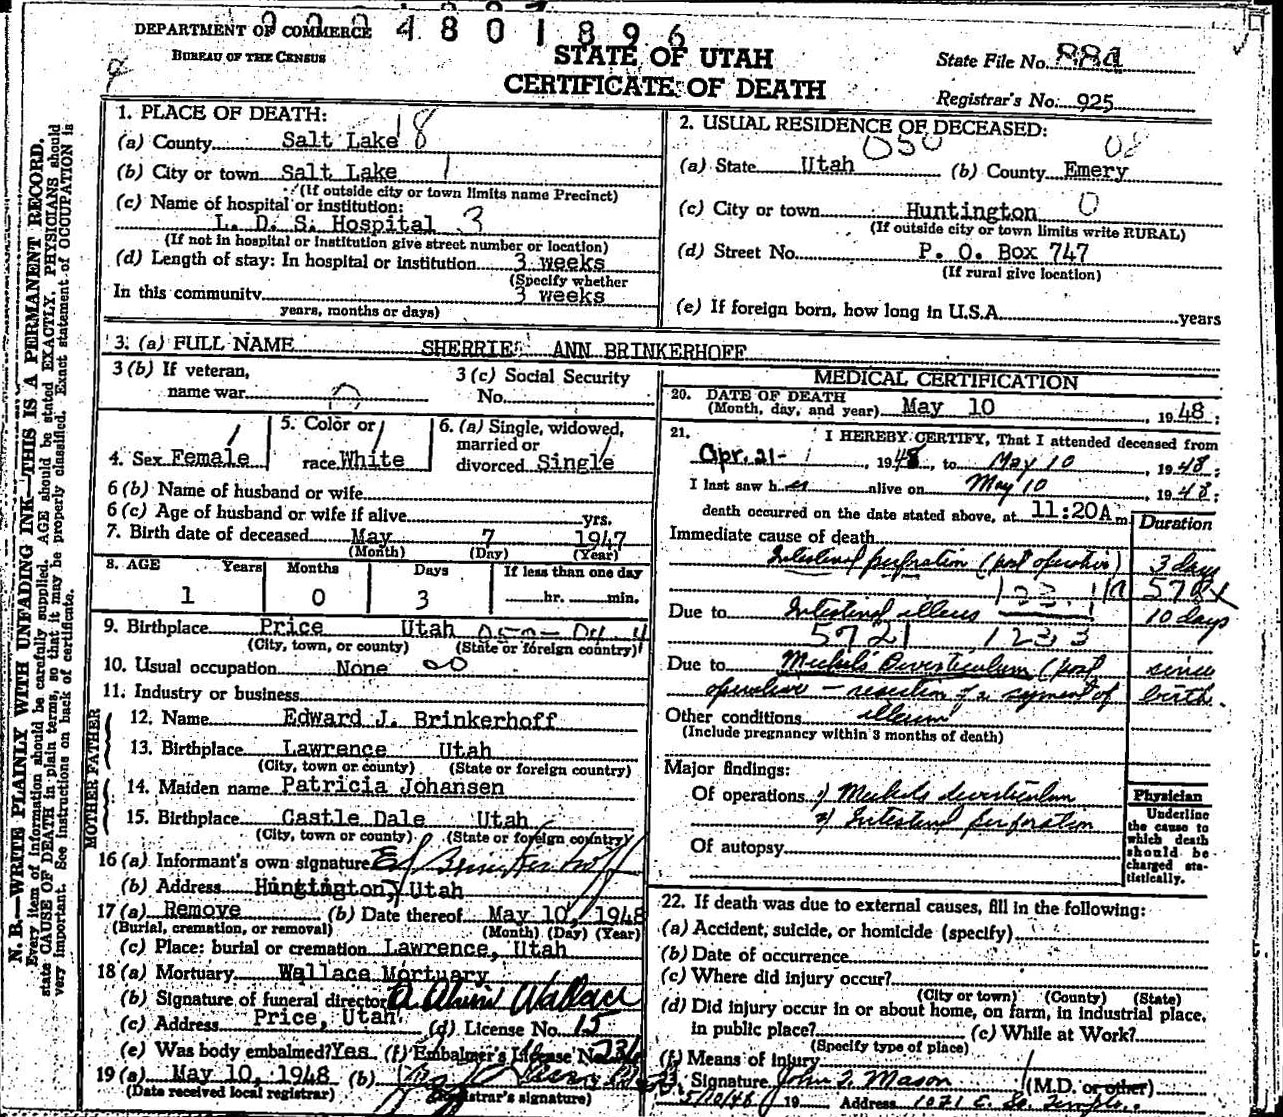 DEPARTMENT OF COMMERCE 4801896
BUREAU OF THE CENSUS
STATE OF UTAH
CERTIFICATE OF DEATH
State File No. 884
Registrar's No. 925
N. B.—WRITE PLAINLY WITH UNFADING INK—THIS IS A PERMANENT RECORD.
Every item of information should be carefully supplied. AGE should be stated EXACTLY. PHYSICIANS should
state CAUSE OF DEATH in plain terms, so that it may be properly classified. Exact statement of OCCUPATION is
very important. See instructions on back of certificate.
1. PLACE OF DEATH:
(a) County Salt Lake 18
(b) City or town Salt Lake 1
(If outside city or town limits name Precinct)
(c) Name of hospital or institution:
L. D. S. Hospital 3
(If not in hospital or institution give street number or location)
(d) Length of stay: In hospital or institution 3 weeks
(Specify whether
In this community 3 weeks
years, months or days)
2. USUAL RESIDENCE OF DECEASED:
(a) State Utah (b) County Emery
(c) City or town Huntington 0
(If outside city or town limits write RURAL)
(d) Street No. P. O. Box 747
(If rural give location)
(e) If foreign born, how long in U.S.A. years
3. (a) FULL NAME SHERRIE ANN BRINKERHOFF
3 (b) If veteran,
name war
3 (c) Social Security
No.
4. Sex Female
5. Color or
race White
6. (a) Single, widowed,
married or
divorced Single
6 (b) Name of husband or wife
6 (c) Age of husband or wife if alive yrs.
7. Birth date of deceased May 7 1947
(Month) (Day) (Year)
8. AGE Years Months Days If less than one day
1 0 3 hr. min.
9. Birthplace Price Utah
(City, town, or county) (State or foreign country)
10. Usual occupation None
11. Industry or business
FATHER
12. Name Edward J. Brinkerhoff
13. Birthplace Lawrence Utah
(City, town or county) (State or foreign country)
MOTHER
14. Maiden name Patricia Johansen
15. Birthplace Castle Dale Utah
(City, town or county) (State or foreign country)
16 (a) Informant's own signature Ed J Brinkerhoff
(b) Address Huntington, Utah
17 (a) Remove (b) Date thereof May 10, 1948
(Burial, cremation, or removal) (Month) (Day) (Year)
(c) Place: burial or cremation Lawrence, Utah
18 (a) Mortuary Wallace Mortuary
(b) Signature of funeral director Wallace
(c) Address Price, Utah (d) License No. 15
(e) Was body embalmed? Yes (f) Embalmer's License No.
19 (a) May 10, 1948 (b)
(Date received local registrar) (Registrar's signature)
MEDICAL CERTIFICATION
20. DATE OF DEATH
(Month, day, and year) May 10 1948;
21. I HEREBY CERTIFY, That I attended deceased from
Apr. 21- , 1948, to May 10, 1948;
I last saw her alive on May 10, 1948;
death occurred on the date stated above, at 11:20Am
Duration
Immediate cause of death
Intestinal perforation (post operative) 3 days
Due to Intestinal illeus 10 days
5721 1233
Due to Meckels Diverticulum (post since
operative - resection of a segment of birth.
Other conditions illeum
(Include pregnancy within 3 months of death)
Major findings:
Of operations 1) Meckels diverticulum
2) Intestinal perforation
Of autopsy
Physician
Underline
the cause to
which death
should be
charged sta-
tistically.
22. If death was due to external causes, fill in the following:
(a) Accident, suicide, or homicide (specify)
(b) Date of occurrence
(c) Where did injury occur?
(City or town) (County) (State)
(d) Did injury occur in or about home, on farm, in industrial place,
in public place? (c) While at Work?
(Specify type of place)
(f) Means of injury
Signature John T. Mason (M.D. or other)
5/10/48 19 Address 1071 E. So. Temple.